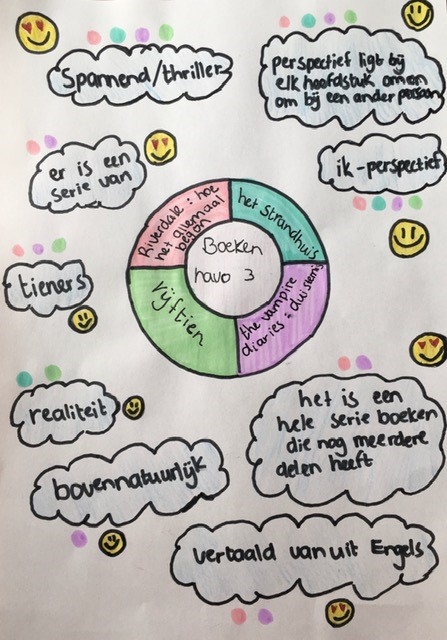 Spannend/thriller
perspectief ligt bij
elk hoofdstuk om en
om bij een ander persoon
er is een
serie van
ik-perspectief
Riverdale : hoe
het allemaal
begon
het strandhuis
Boeken
havo 3
vijftien
the vampire
diaries : duisternis
tieners
realiteit
het is een
hele serie boeken
die nog meerdere
delen heeft
bovennatuurlijk
vertaald vanuit Engels